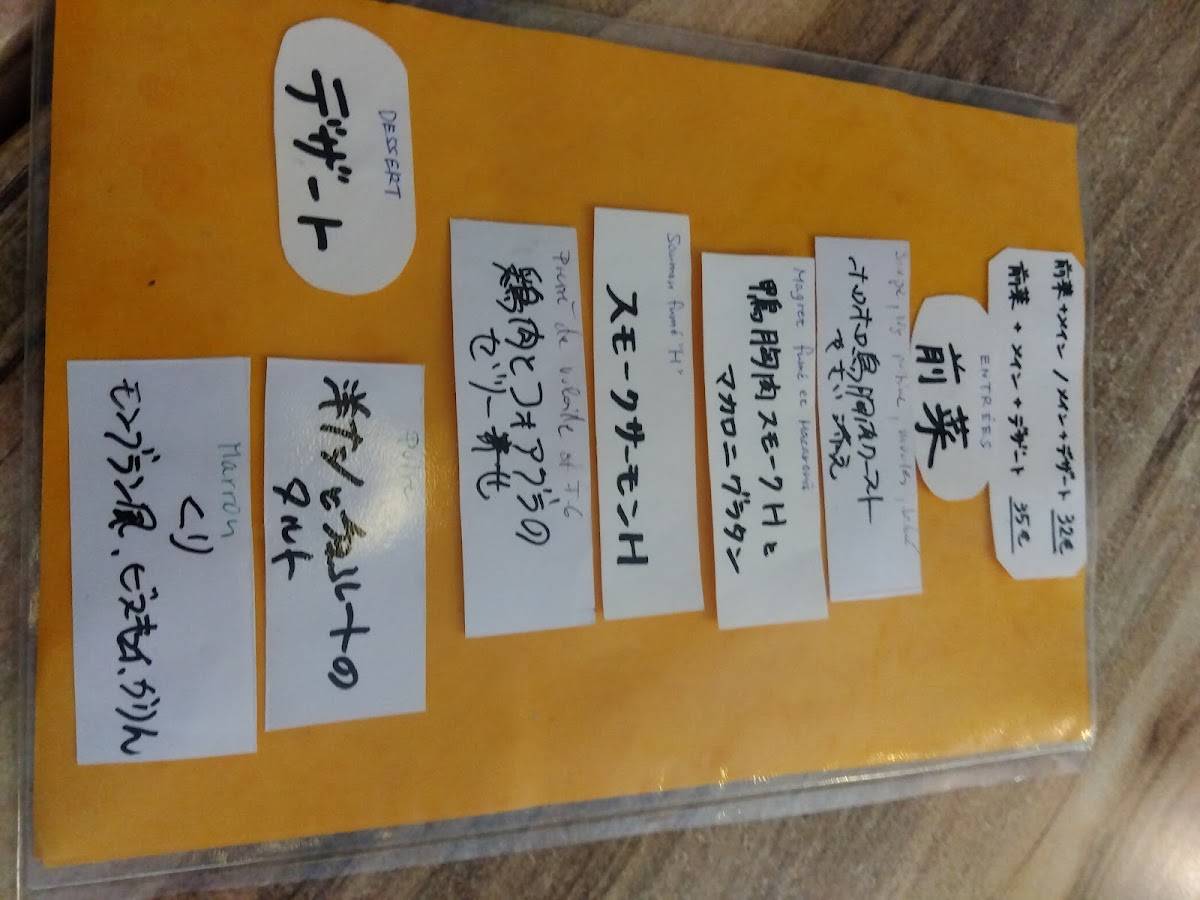 前菜+メイン / メイン+デザート 32€
前菜 + メイン + デザート 35€
ENTRÉES
前菜
ホロホロ鳥胸肉ロースト
Magret fumé et Macaronis
鴨胸肉スモークHと
マカロニグラタン
Saumon fumé "H"
スモークサーモンH
de volaille et F.G
鶏肉とフォアグラの
ゼリー寄せ
DESSERT
デザート
Poire
洋ナシと
タルト
Marron
くり
モンブラン風、ビスキュイ、かりん